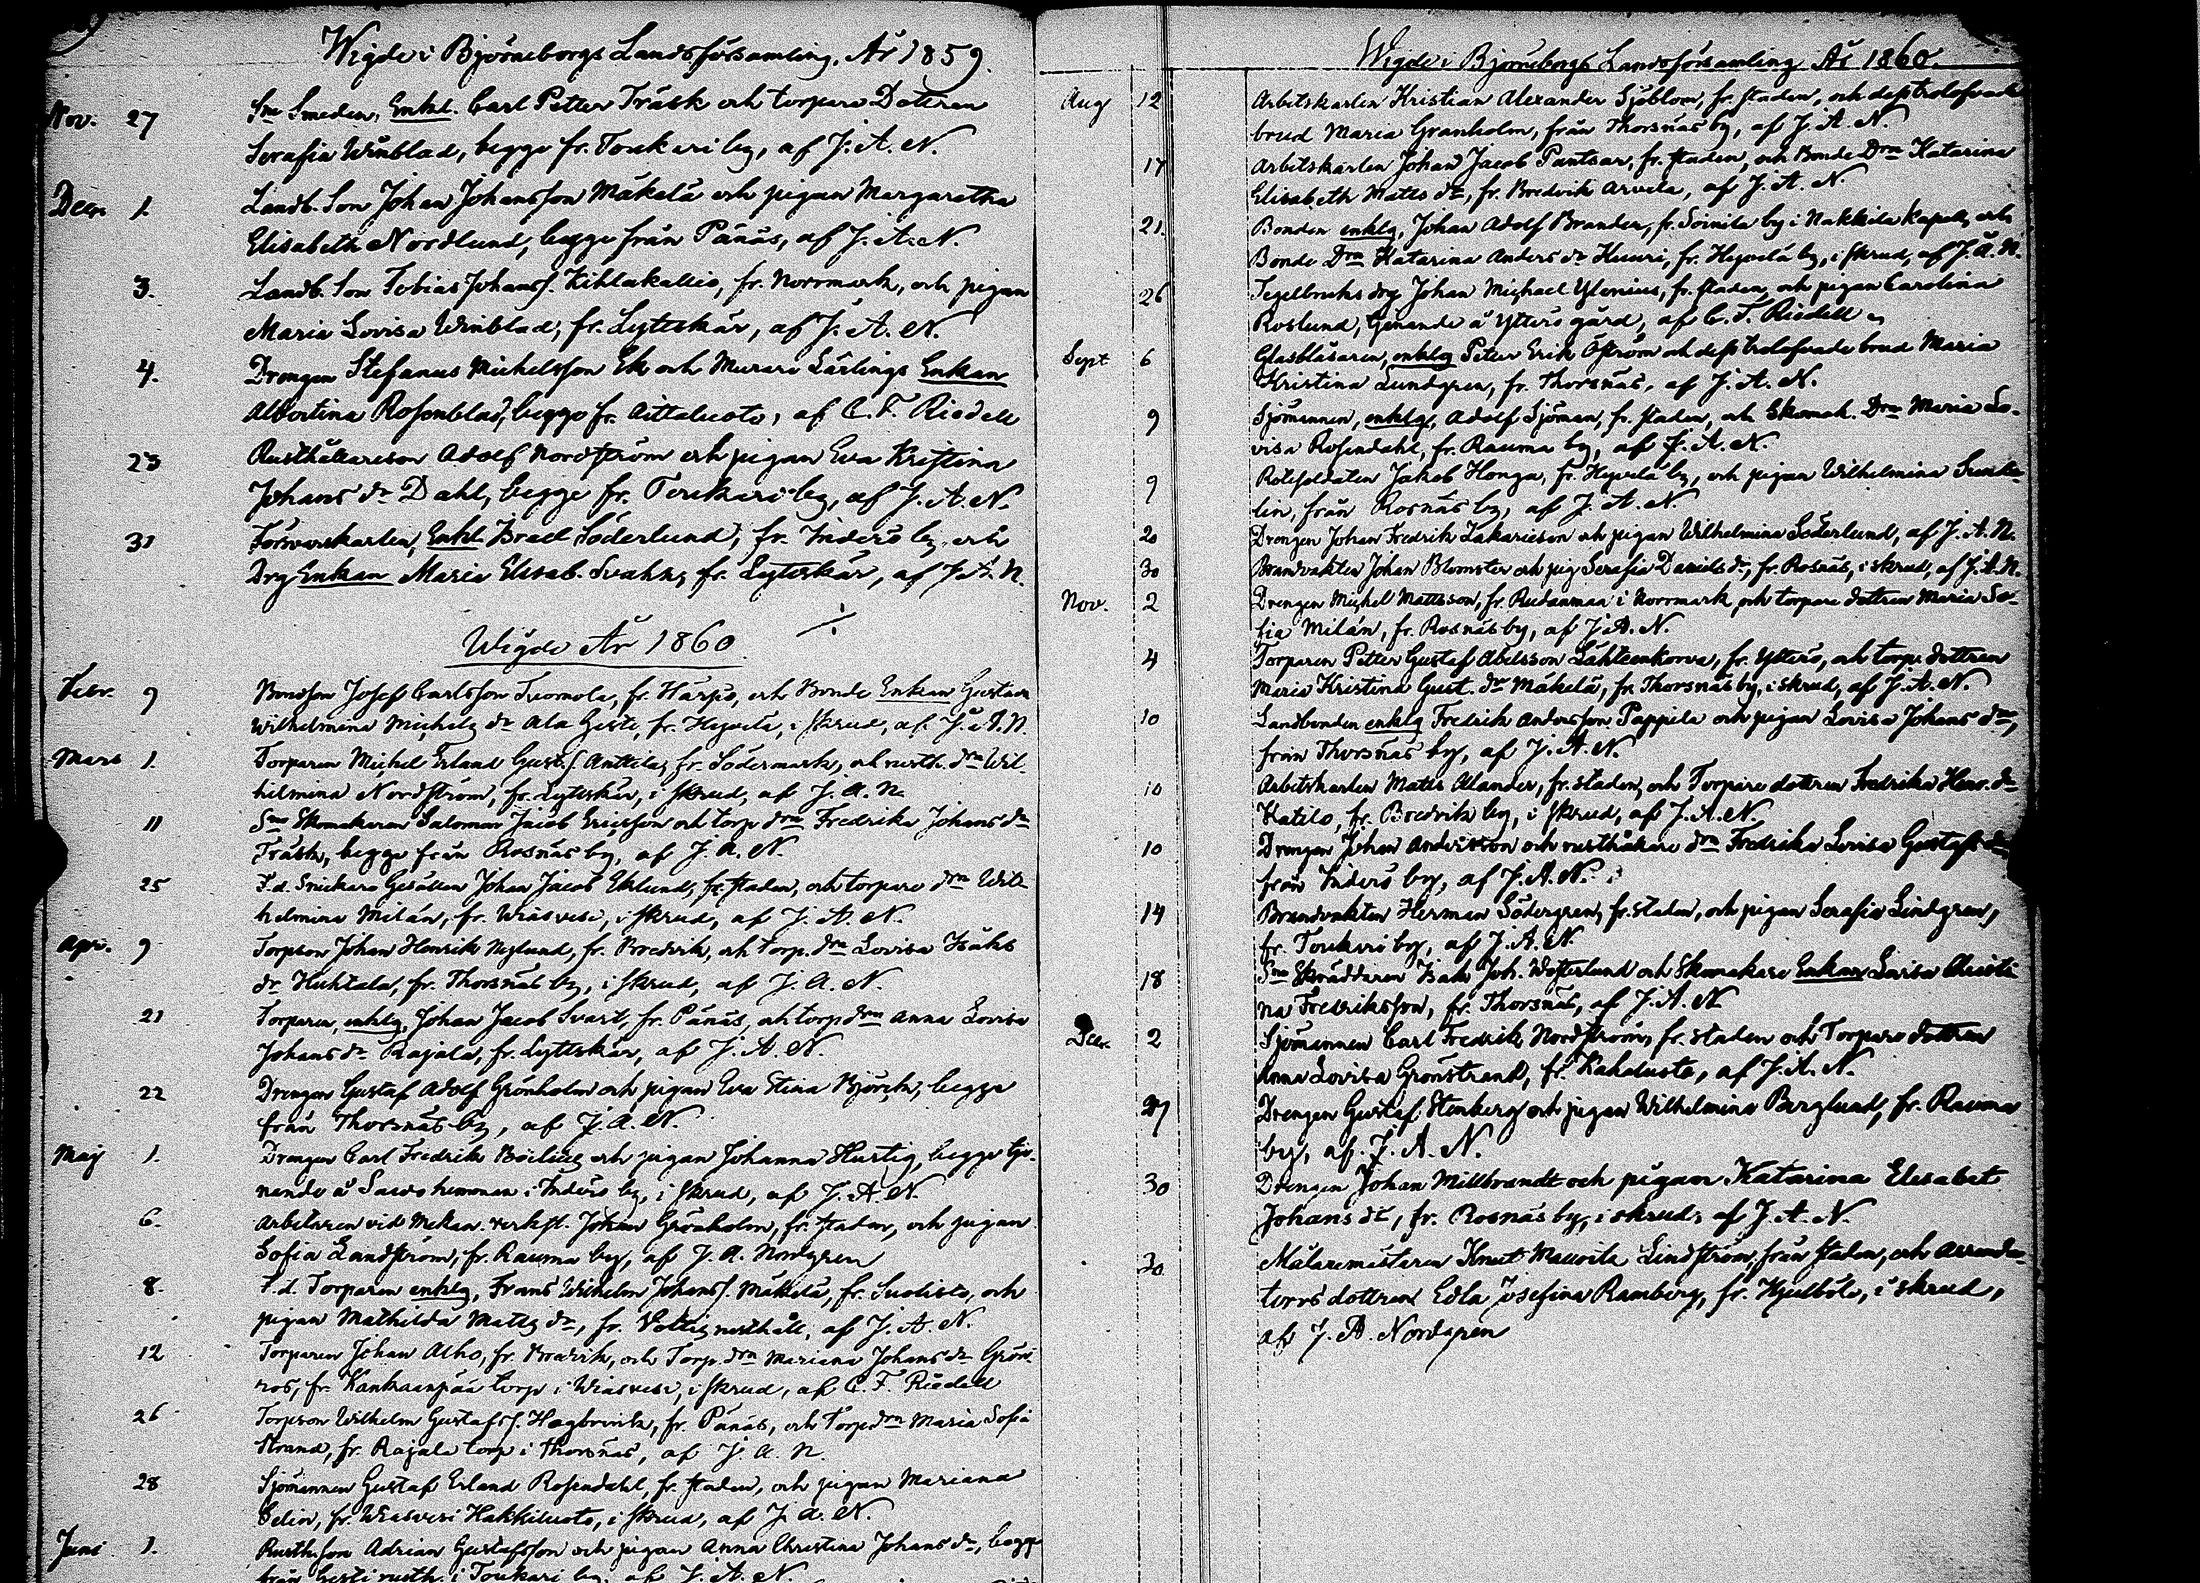 Wigde i Björneborgs Landsförsamling, År 1859.
Nov. 27 Sne Smeden, Enkl. Carl Petter Träsk och torpare Dottren
Serafia Winblad, begge fr. Toukari by, af J. A. N.
Decr 1. Landb. Son Johan Johansson Mäkelä och pigan Margaretha
Elisabeth Nordlund, begge från Pänäs, af J. A. N.
3. Landb. Son Tobias Johanss. Kihlakallio, fr. Norrmark, och pigan
Maria Lovisa Winblad, fr. Lyttskär, af J. A. N.
4. Drengen Stefanus Michelsson Ek och Murare Lärlings Enkan
Albertina Rosenblad, begge fr. Aittaluoto, af C. F. Riedell
23 Rusthållareson Adolf Nordström och pigan Eva Kristina
Johans dr Dahl, begge fr. Toukari by, af J. A. N.
31 Försvarskarlen, Enkl Israel Söderlund, fr. Inderö by, och
Drg Enkan Maria Elisab. Svahn, fr. Lyttskär, af J. A. N.
Wigde År 1860
Febr. 9 Bondson Josef Carlsson Tuomola, fr. Harjo, och Bonde Enkan Gustava
Wilhelmina Michels dr Ala Gisti, fr. Hyvelä, i skrud, af J. A. N.
Mars 1. Torparen Michel Erland Gust.s. Anttila, fr. Södermark, och rusth. drn Wil-
helmina Nordström, fr. Lyttskär, i skrud, af J. A. N.
11 Sne Skomakaren Salomon Jacob Ericsson och torp drn Fredrika Johans dr
Träsk, begge från Rosnäs by, af J. A. N.
25 F.d. Snickare Gesällen Johan Jacob Eklund, fr. staden, och torpare drn Wil-
helmina Milán, fr. Wiasvesi, i skrud, af J. A. N.
Apr. 9 Torpson Johan Henrik Nylund, fr. Bredvik, och torp. drn Lovisa Isaks
dr Huhtala, fr. Thorsnäs by, i skrud, af J. A. N.
21 Torparen, enklg, Johan Jacob Svart, fr. Pänäs, och torp drn Anna Lovisa
Johans dr Rajala, fr. Lyttskär, af J. A. N.
22 Drengen Gustaf Adolf Grönholm och pigan Eva Stina Björck, begge
från Thorsnäs by, af J. A. N.
Maj 1. Drengen Carl Fredrik Böcling och pigan Johanna Hurtig, begge tje-
nande å Saviohemman i Inderö by, i skrud, af J. A. N.
6. Arbetaren vid Mekan. verkst. Johan Grönholm, fr. staden, och pigan
Sofia Landström, fr. Rauma by, af J. A. Nordgren
8. F.d. Torparen enklg, Frans Wilhelm Johanss. Mäkelä, fr. Suolisto, och
pigan Mathilda Matts dr, fr. rusthåll, af J. A. N.
12 Torparen Johan Alho, fr. Bredvik, och Torp. drn Mariana Johans dr Grön-
ros, fr. Kankaanpää torp i Wiasvesi, i skrud, af C. F. Riedell
26 Torpson Wilhelm Gustafss. Hagbrink, fr. Pänäs, och torp drn Maria Sofia
Strand, fr. Rajala torp i Thorsnäs, af J. A. N.
28 Sjömannen Gustaf Erland Rosendahl, fr. staden, och pigan Mariana
Selin, fr. Wiasvesi Hakkiluoto, i skrud, af J. A. N.
Juni 1. Rusth. son Adrian Gustafsson och pigan Anna Christina Johans dr, begge
från rusth. i Toukari by, af J. A. N.
Wigde i Björneborgs Landsförsamling År 1860.
Aug 12 Arbetskarlen Kristian Alexander Sjöblom, fr. staden, och dess trolofvade
brud Maria Granholm, från Thorsnäs by, af J. A. N.
17 Arbetskarlen Johan Jacob Pantsar, fr. staden, och Bonde Drn Katarina
Elisabeth Matts dr, fr. Bredvik Arvela, af J. A. N.
21. Bonden enklg, Johan Adolf Brander, fr. Soinila by i Nakkila Kapell, och
Bonde Drn Katarina Anders dr Huuri, fr. Hyvelä by, i skrud, af J. A. N.
26 Tegelbruks drg Johan Michael Ylenius, fr. staden, och pigan Carolina
Roslund, tjenande å Ytterö gård, af C. F. Riedell
Sept 6 Glasblåsaren, enklg Peter Erik Öström och dess trolofvade brud Maria
Kristina Lundgren, fr. Thorsnäs, af J. A. N.
9 Sjömannen, enklg, Adolf Sjöman, fr. staden, och Skomak. Drn Maria Lo-
visa Rosendahl, fr. Rauma by, af J. A. N.
9 Rotesoldaten Jakob Honga, fr. Hyvelä by, och pigan Wilhelmina
lin, från Rosnäs by, af J. A. N.
20 Drengen Johan Fredrik Zakariesson och pigan Wilhelmina Söderlund, af J. A. N.
30 Brandvakten Johan Blomster och pig Serafia Daniels dr, fr. Rosnäs, i skrud, af J. A. N.
Nov. 2 Drengen Michel Mattsson, fr. Rudanmaa i Norrmark, och torpare dottren Maria So-
fia Milán, fr. Rosnäs by, af J. A. N.
4 Torparen Petter Gustaf Abelsson Lähteenkorva, fr. Ytterö, och torp. dottren
Maria Kristina Gust. dr Mäkelä, fr. Thorsnäs by, i skrud, af J. A. N.
10 Landbonden enklg Fredrik Andersson Pappila och pigan Lovisa Johans dr,
från Thorsnäs by, af J. A. N.
10 Arbetskarlen Matts Alander, fr. staden, och Torpare dottren Fredrika Henr. dr
Katilo, fr. Bredvik by, i skrud, af J. A. N.
10 Drengen Johan Andersson och rusthållare drn Fredrika Lovisa Gustafs dr
från Inderö by, af J. A. N.
14 Brandvakten Herman Södergren, fr. staden, och pigan Serafia Lindgren,
fr. Toukari by, af J. A. N.
18 Sne Skräddaren Isak Joh. Westerlund och Skomakare Enkan Lovisa Christi
na Fredriksson, fr. Thorsnäs, af J. A. N.
Decr. 2 Sjömannen Carl Fredrik Nordström, fr. staden och Torpare dottren
Anna Lovisa Grönstrand, fr. Kahaluoto, af J. A. N.
27 Drengen Gustaf Stenberg och pigan Wilhelmina Berglund, fr. Rauma
by, af J. A. N.
30 Drengen Johan Millbrandt och pigan Katarina Elisabet
Johans dr, fr. Rosnäs by, i skrud, af J. A. N.
30. Målaremästaren Knut Mauritz Lindström, från staden, och Arrenda-
tors dottren Edla Josefina Ramberg, fr. Hjulböle, i skrud,
af J. A. Nordgren